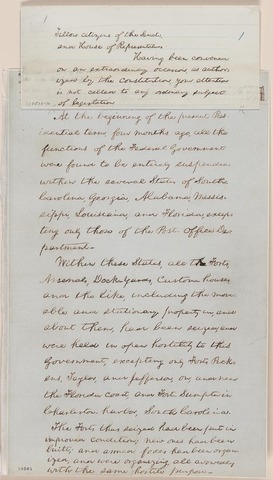 Fellow citizens of the Senate
and House of Representatives.
Having been convened
on an extraordinary occasion, as author-
ized by the Constitution, your attention
is not called to any ordinary subject
of legislation
At the beginning of the present Pres-
idential term, four months ago, all the
functions of the Federal Government
were found to be entirely suspended
within the several States of South
Carolina, Georgia, Alabama, Missis-
sippi, Louisiana, and Florida, except-
ing only those of the Post Office De-
partment.
Within these States, all the Forts,
Arsenals, Dock-yards, Custom-houses,
and the like, including the move-
able and stationary property in, and
about them, had been seized, and
were held in open hostility to this
Government, excepting only Forts Pick-
ens, Taylor, and Jefferson, on, and near
the Florida coast, and Fort Sumpter in
Charleston harbor, South Carolina.
The Forts thus seized had been put in
improved condition; new ones had been
built; and armed forces had been organ-
ized, and were organizing, all avowedly
with the same hostile purpose.